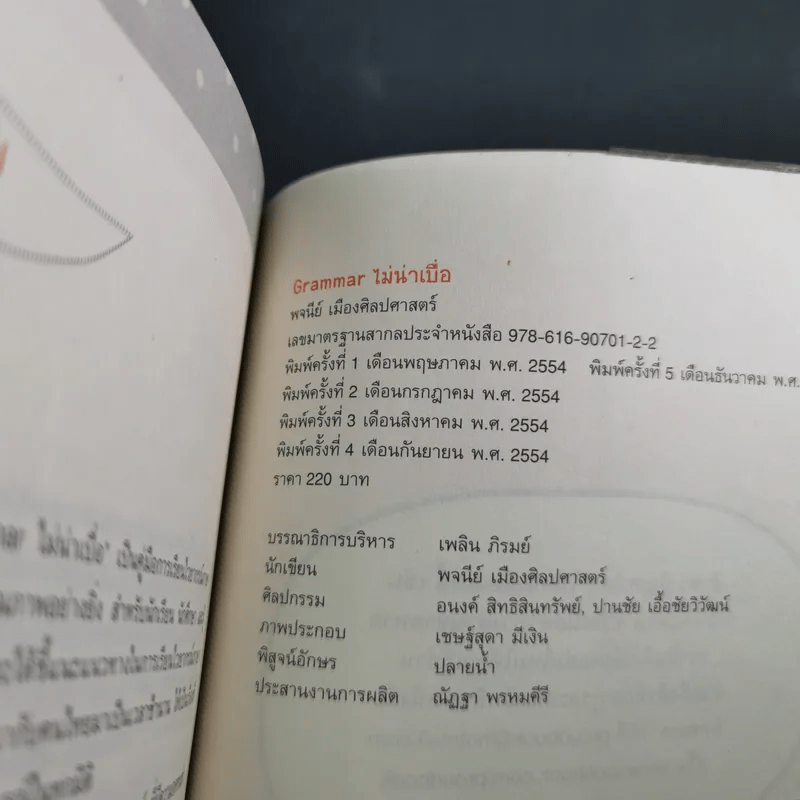 Grammar ไม่น่าเบื่อ
พจนีย์ เมืองศิลปศาสตร์
เลขมาตรฐานสากลประจำหนังสือ 978-616-90701-2-2
พิมพ์ครั้งที่ 1 เดือนพฤษภาคม พ.ศ. 2554 พิมพ์ครั้งที่ 5 เดือนธันวาคม พ.ศ.
พิมพ์ครั้งที่ 2 เดือนกรกฎาคม พ.ศ. 2554
พิมพ์ครั้งที่ 3 เดือนสิงหาคม พ.ศ. 2554
พิมพ์ครั้งที่ 4 เดือนกันยายน พ.ศ. 2554
ราคา 220 บาท
บรรณาธิการบริหาร เพลิน ภิรมย์
นักเขียน พจนีย์ เมืองศิลปศาสตร์
ศิลปกรรม อนงค์ สิทธิสินทรัพย์, ปานชัย เอื้อชัยวิวัฒน์
ภาพประกอบ เชษฐ์สุดา มีเงิน
พิสูจน์อักษร ปลายน้ำ
ประสานงานการผลิต ณัฏฐา พรหมคีรี
ไม่น่าเบื่อ" เป็นคู่มือการเรียน
สำหรับนักเรียน นักศึกษา